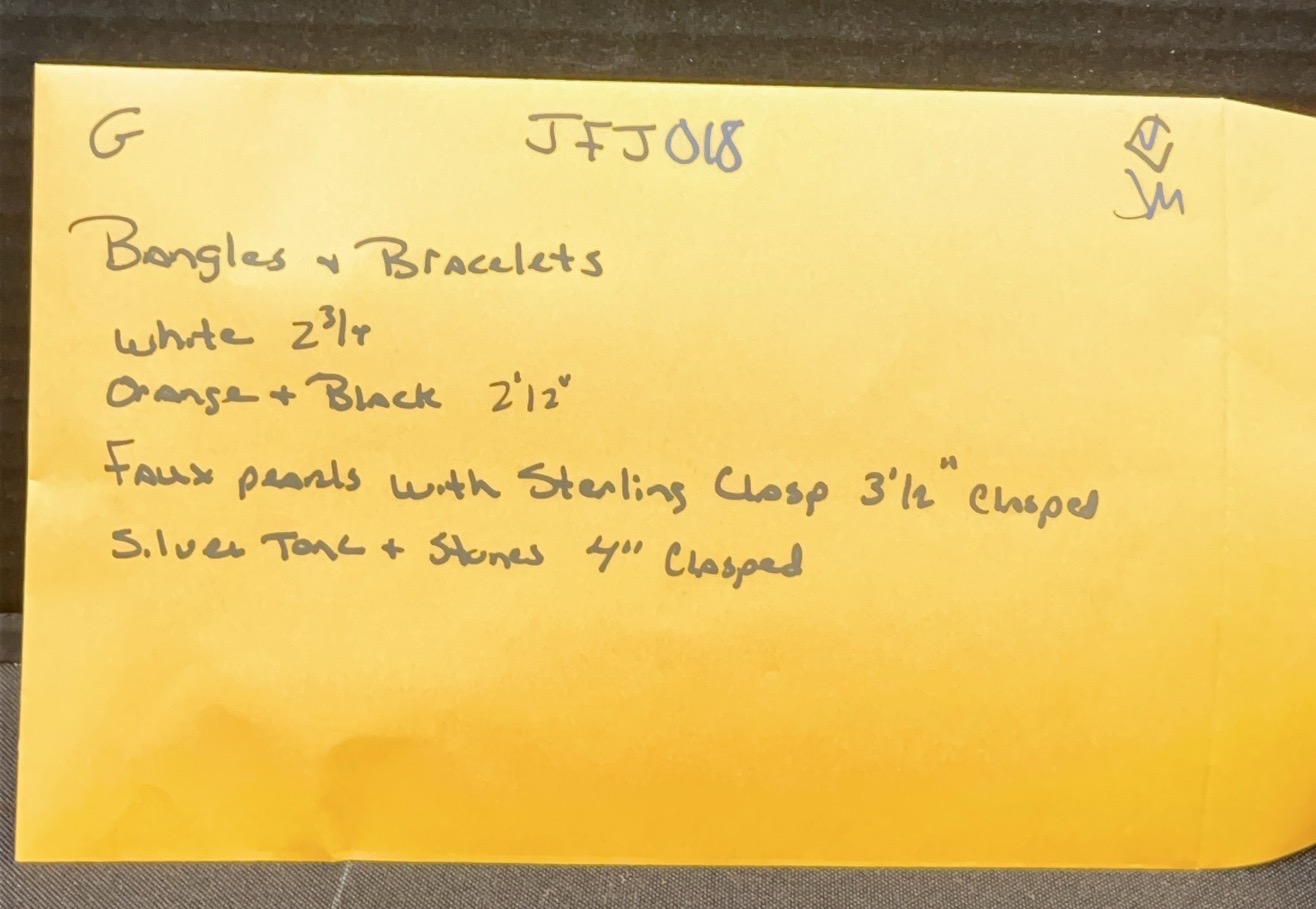 G JFJ018
JM
Bangles + Bracelets
white 2 3/4
Orange + Black 2 1/2"
Faux pearls with Sterling Clasp 3 1/2" Clasped
Silver Tone + Stones 4" Clasped